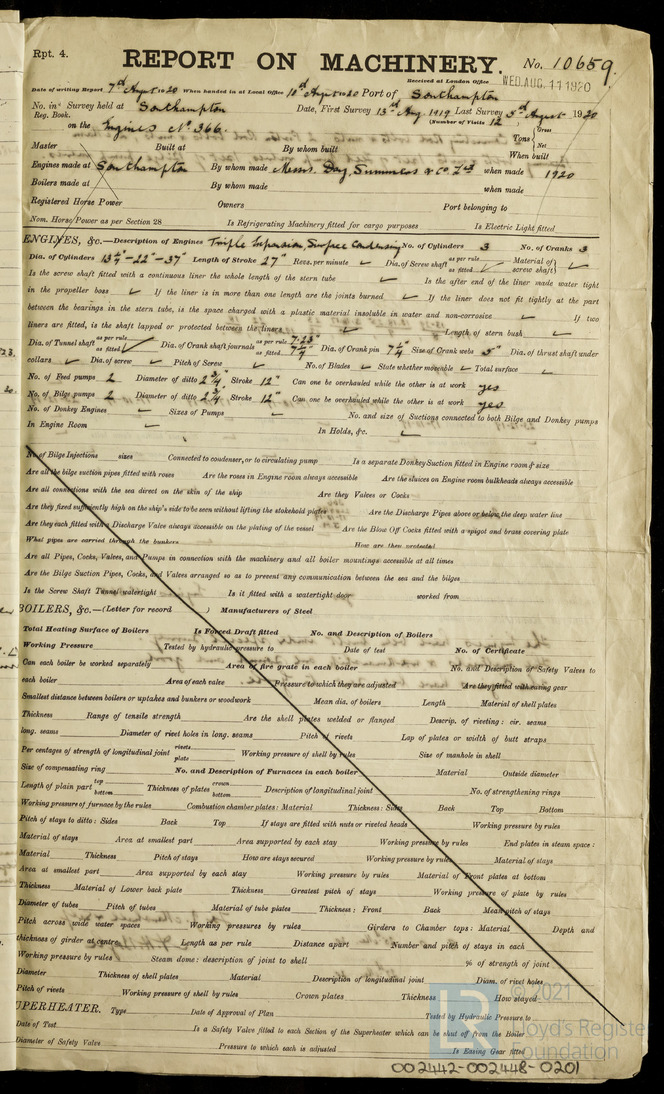 Rpt. 4.
REPORT ON MACHINERY.
No. 10659
Received at London Office WED. AUG. 11 1920
Date of writing Report 7th Augt 1920 When handed in at Local Office 10th Augt 1920 Port of Southampton
No. in Survey held at Southampton Date, First Survey 13th Aug. 1919 Last Survey 5th August 1920
Reg. Book. (Number of Visits 12
on the Engines No. 366. Tons { Gross Net
Master Built at By whom built When built
Engines made at Southampton By whom made Messrs. Day, Summers & Co. Ltd when made 1920
Boilers made at By whom made when made
Registered Horse Power Owners Port belonging to
Nom. Horse Power as per Section 28 Is Refrigerating Machinery fitted for cargo purposes Is Electric Light fitted
ENGINES, &c.—Description of Engines Triple Expansion, Surface Condensing No. of Cylinders 3 No. of Cranks 3
Dia. of Cylinders 13¾"-22"-37" Length of Stroke 27" Revs. per minute Dia. of Screw shaft as per rule as fitted Material of screw shaft
Is the screw shaft fitted with a continuous liner the whole length of the stern tube Is the after end of the liner made water tight
in the propeller boss If the liner is in more than one length are the joints burned If the liner does not fit tightly at the part
between the bearings in the stern tube, is the space charged with a plastic material insoluble in water and non-corrosive If two
liners are fitted, is the shaft lapped or protected between the liners Length of stern bush
Dia. of Tunnel shaft as per rule as fitted Dia. of Crank shaft journals as per rule 7.23" as fitted 7¼" Dia. of Crank pin 7¼ Size of Crank webs 5" Dia. of thrust shaft under
collars Dia. of screw Pitch of Screw No. of Blades State whether moveable Total surface
No. of Feed pumps 2 Diameter of ditto 2¾" Stroke 12" Can one be overhauled while the other is at work yes
No. of Bilge pumps 2 Diameter of ditto 2¾" Stroke 12" Can one be overhauled while the other is at work yes
No. of Donkey Engines Sizes of Pumps No. and size of Suctions connected to both Bilge and Donkey pumps
In Engine Room In Holds, &c.
No. of Bilge Injections sizes Connected to condenser, or to circulating pump Is a separate Donkey Suction fitted in Engine room & size
Are all the bilge suction pipes fitted with roses Are the roses in Engine room always accessible Are the sluices on Engine room bulkheads always accessible
Are all connections with the sea direct on the skin of the ship Are they Valves or Cocks
Are they fixed sufficiently high on the ship's side to be seen without lifting the stokehold plates Are the Discharge Pipes above or below the deep water line
Are they each fitted with a Discharge Valve always accessible on the plating of the vessel Are the Blow Off Cocks fitted with a spigot and brass covering plate
What pipes are carried through the bunkers How are they protected
Are all Pipes, Cocks, Valves, and Pumps in connection with the machinery and all boiler mountings accessible at all times
Are the Bilge Suction Pipes, Cocks, and Valves arranged so as to prevent any communication between the sea and the bilges
Is the Screw Shaft Tunnel watertight Is it fitted with a watertight door worked from
BOILERS, &c.—(Letter for record ) Manufacturers of Steel
Total Heating Surface of Boilers Is Forced Draft fitted No. and Description of Boilers
Working Pressure Tested by hydraulic pressure to Date of test No. of Certificate
Can each boiler be worked separately Area of fire grate in each boiler No. and Description of Safety Valves to
each boiler Area of each valve Pressure to which they are adjusted Are they fitted with easing gear
Smallest distance between boilers or uptakes and bunkers or woodwork Mean dia. of boilers Length Material of shell plates
Thickness Range of tensile strength Are the shell plates welded or flanged Descrip. of riveting: cir. seams
long. seams Diameter of rivet holes in long. seams Pitch of rivets Lap of plates or width of butt straps
Per centages of strength of longitudinal joint rivets plate Working pressure of shell by rules Size of manhole in shell
Size of compensating ring No. and Description of Furnaces in each boiler Material Outside diameter
Length of plain part top bottom Thickness of plates crown bottom Description of longitudinal joint No. of strengthening rings
Working pressure of furnace by the rules Combustion chamber plates: Material Thickness: Sides Back Top Bottom
Pitch of stays to ditto: Sides Back Top If stays are fitted with nuts or riveted heads Working pressure by rules
Material of stays Area at smallest part Area supported by each stay Working pressure by rules End plates in steam space:
Material Thickness Pitch of stays How are stays secured Working pressure by rules Material of stays
Area at smallest part Area supported by each stay Working pressure by rules Material of Front plates at bottom
Thickness Material of Lower back plate Thickness Greatest pitch of stays Working pressure of plate by rules
Diameter of tubes Pitch of tubes Material of tube plates Thickness: Front Back Mean pitch of stays
Pitch across wide water spaces Working pressures by rules Girders to Chamber tops: Material Depth and
thickness of girder at centre Length as per rule Distance apart Number and pitch of stays in each
Working pressure by rules Steam dome: description of joint to shell % of strength of joint
Diameter Thickness of shell plates Material Description of longitudinal joint Diam. of rivet holes
Pitch of rivets Working pressure of shell by rules Crown plates Thickness How stayed
UPERHEATER. Type Date of Approval of Plan Tested by Hydraulic Pressure to
Date of Test Is a Safety Valve fitted to each Section of the Superheater which can be shut off from the Boiler
Diameter of Safety Valve Pressure to which each is adjusted Is Easing Gear fitted
© 2021
Lloyd's Register
Foundation
002442-002448-0201